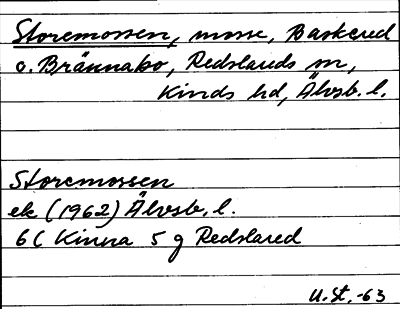 Storemossen, mosse, Baskered
o. Brännabo, Redslareds sn,
Kinds hd, Älvsb. l.
Storemossen
ek (1962) Älvsb. l.
6C Kinna 5 g Redslared
U.St. -63